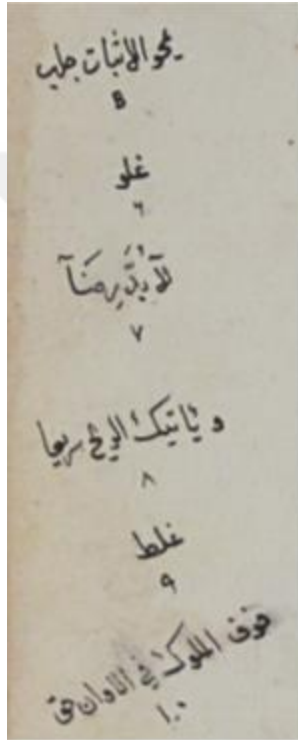 يمحو الاثبات جلب
٥
غلو
٦
لا بد يرضا
٧
و ياتيك الريح سريعا
٨
غلط
٩
فوق الملوك في الاوان حق
١٠